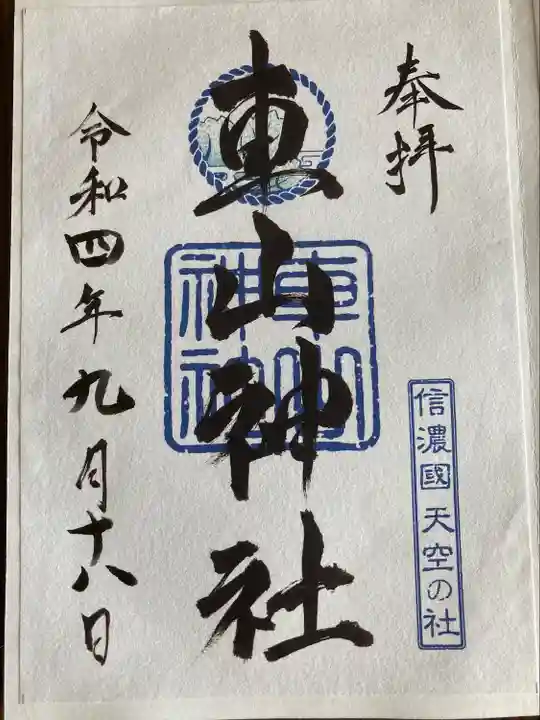 奉拝
信濃國天空の社
車山神社
車山神社
令和四年九月十八日